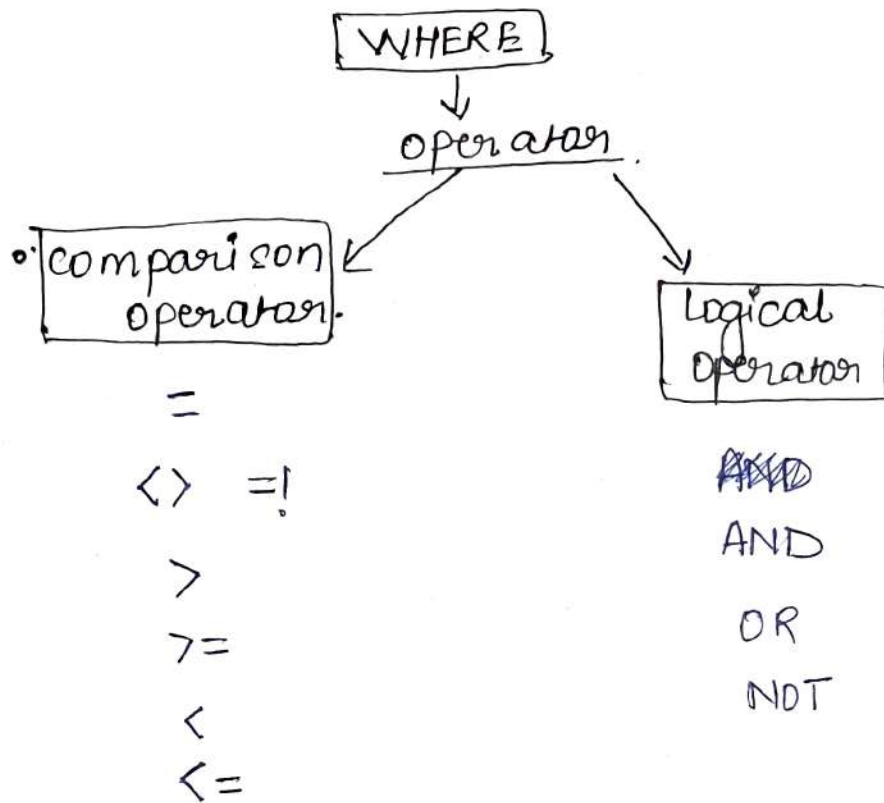 WHERE
operator.
comparison
operator.
=
<> =!
>
>=
<
<=
Logical
operator
AND
AND
OR
NOT